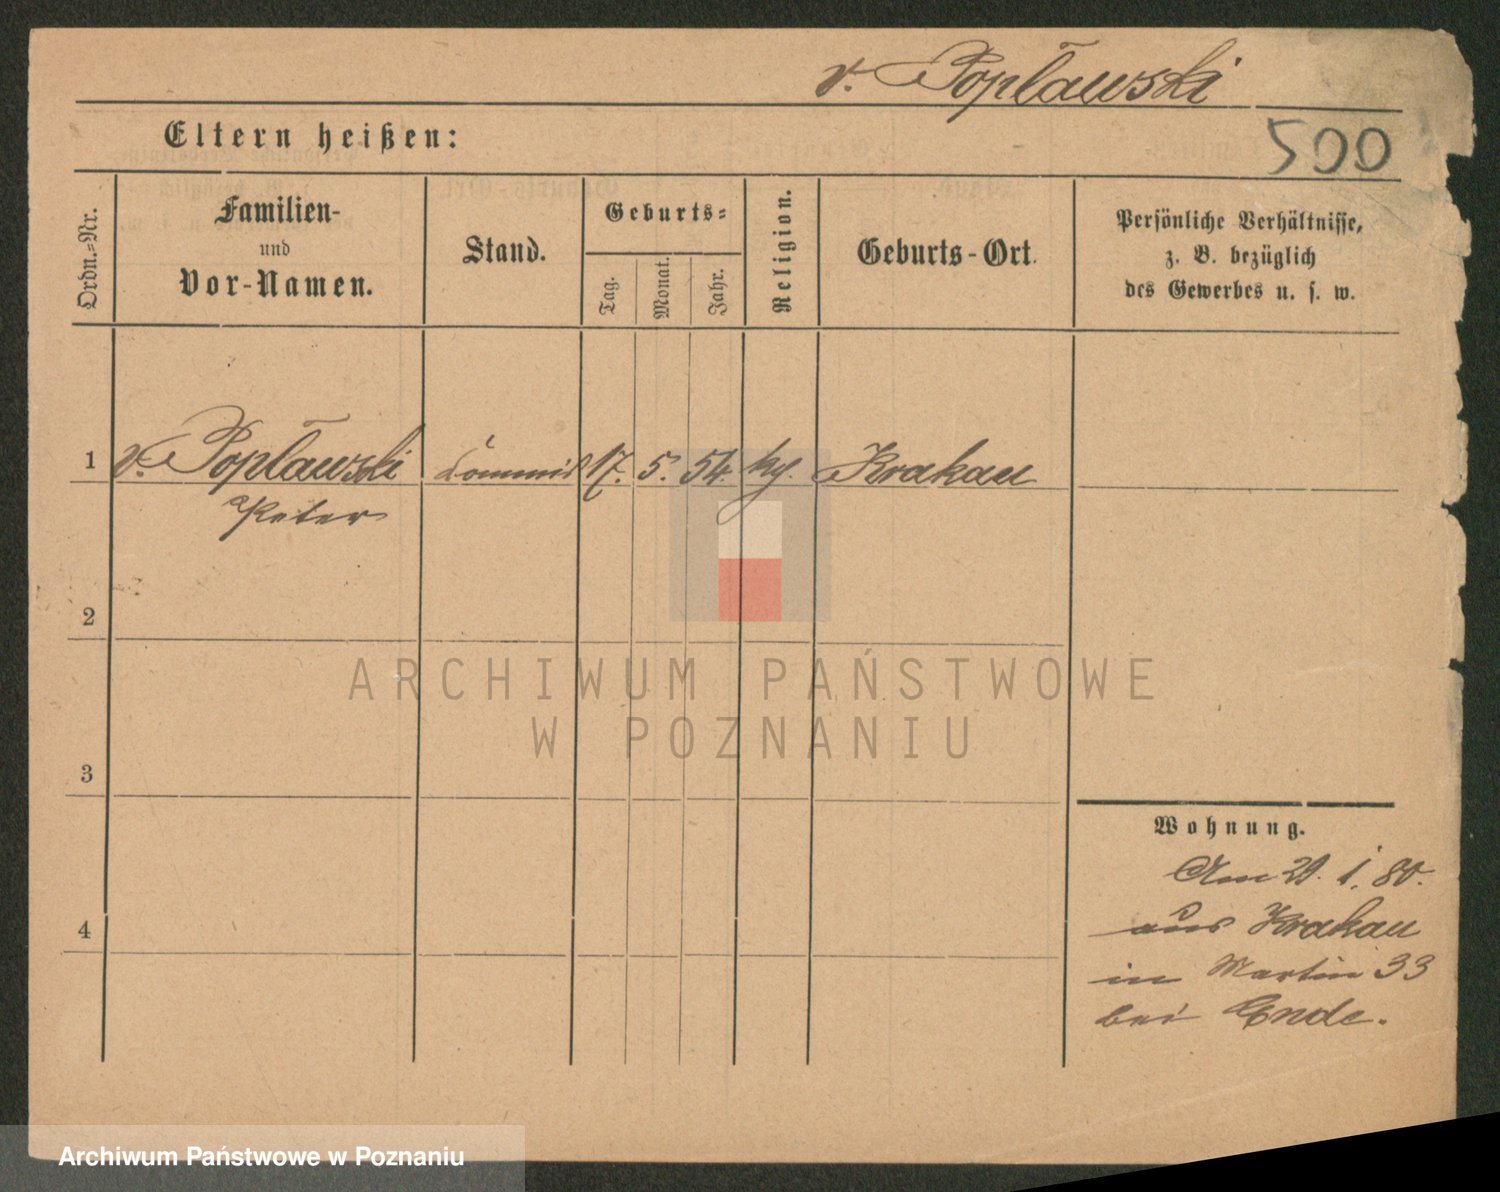 v. Popławski
Eltern heißen:
500
Ordn.=Nr.
Familien-
und
Vor-Namen.
Stand.
Geburts=
Tag.
Monat.
Jahr.
Religion.
Geburts-Ort.
Persönliche Verhältnisse,
z. B. bezüglich
des Gewerbes u. s. w.
1 v. Popławski Commis 17. 5. 54. Krakau
Peter
2
ARCHIWUM PAŃSTWOWE
W POZNANIU
3
Wohnung.
Am 29. 1. 80.
aus Krakau
in Martin 33
bei Ende.
4
Archiwum Państwowe w Poznaniu